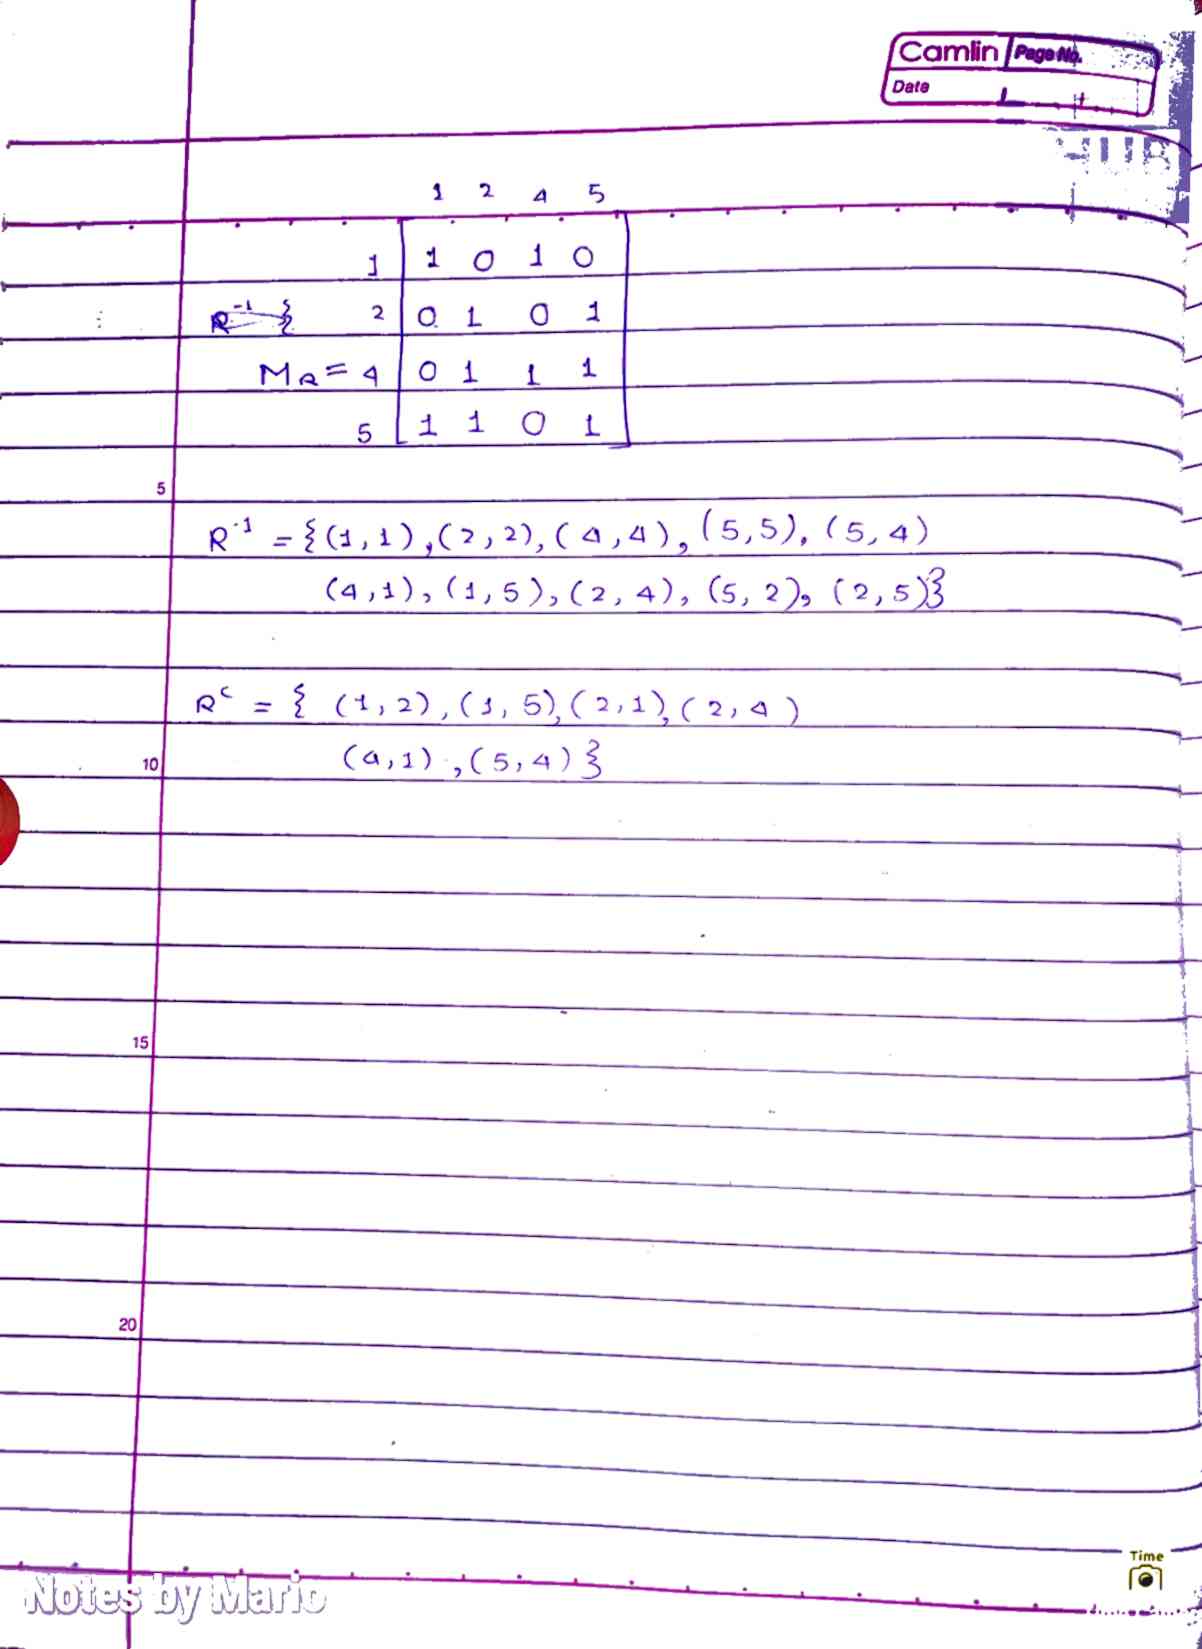 Camlin Page No.
Date
1 2 4 5
1 1 0 1 0
R⁻¹ { 2 0 1 0 1
M_R = 4 0 1 1 1
5 1 1 0 1
5
R⁻¹ = {(1,1),(2,2),(4,4),(5,5),(5,4)
(4,1),(1,5),(2,4),(5,2),(2,5)}
Rᶜ = { (1,2),(1,5),(2,1),(2,4)
10
(4,1),(5,4)}
15
20
Time
Notes by Mario